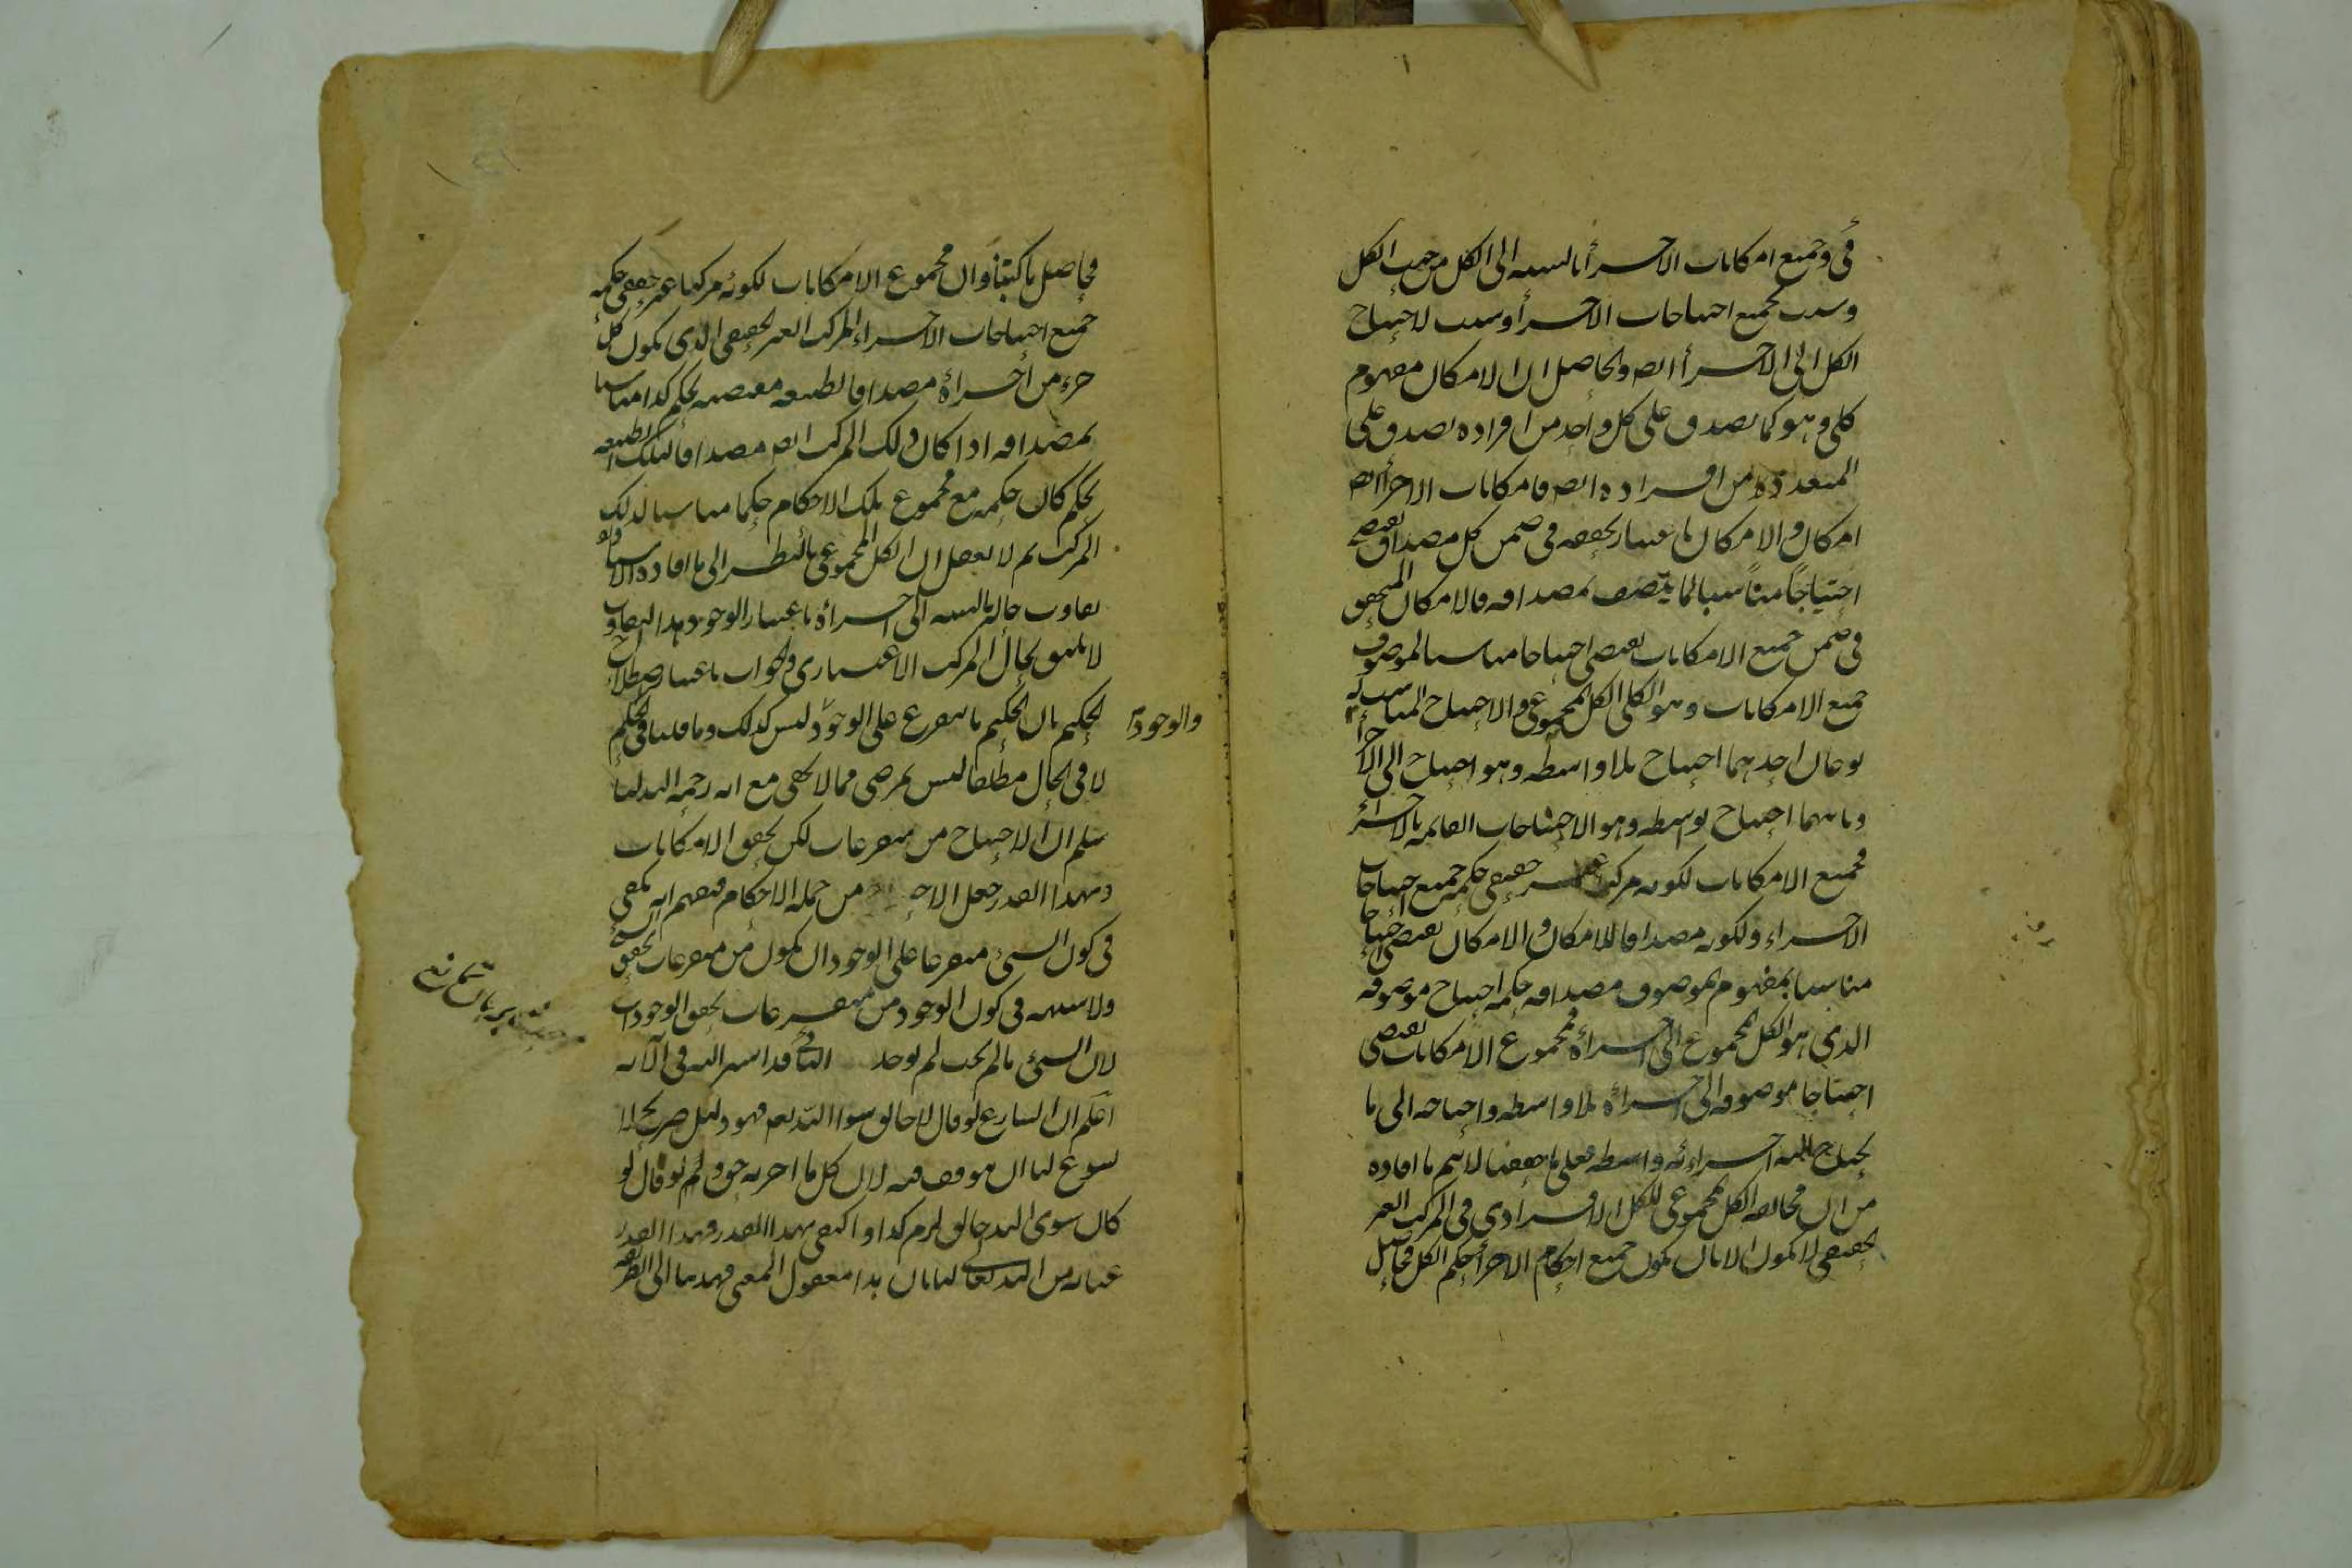 في وجميع امكانات الاجزأ بالنسبه الى الكل من حيث الكل
وسبب لجميع احتياجات الاجزأ وسبب لاحتياج
الكل الى الاجزأ ايضا والحاصل ان الامكان مفهوم
كلى وهو كما يصدق على كل واحد من افراده يصدق على
المتعدده من افراده ايضا فامكانات الاجزأ ايضا
امكان والامكان باعتبار تحققه فى ضمن كل مصداق يقتضى
احتياجاً مناسبا لما يتصف بمصداقه فالامكان المتحقق
فى ضمن جميع الامكانات يقتضى احتياجا مناسبا لموصوف
جميع الامكانات وهو الكلى الكل المجموعى والاحتياج المناسب له
نوعان احدهما احتياج بلا واسطه وهو احتياج الى الاجزأ
وثانيهما احتياج بوسطه وهو الاحتياجات القايمه بالاجزاء
فجميع الامكانات لكونه مركبا غير حقيقى حكمه جميع احتياجات
الاجزاء ولكونه مصداقا للامكان والامكان يقتضى احتياجا
مناسبا بمفهوم بموصوف مصداقه حكمه احتياج موصوفه
الذي هو الكل المجموع الى اجزاؤه فمجموع الامكانات يقتضى
احتياجا موصوفه الى اجزاؤه بلا واسطه واحتياجه الى ما
يحتاج اليه اجزائه واسطه فعلى ما حققنا لا يتم ما افاده
من ان مخالفه الكل المجموعى للكل الافرادى فى المركب الغير
الحقيقى لا يكون الا بان يكون جميع احكام الاجزأ حكم الكل فحاصل
فحاصل ما كتبنا وان مجموع الامكانات لكونه مركبا غير حقيقى حكمه
جميع احتياجات الاجزاء المركب الغير الحقيقى الذى يكون كل
جزء من اجزاؤه مصداقا لطبيعه مقتضيه لحكم كذا مناسبا
بمصداقه اذا كان ذلك المركب ايضا مصداقا لتلك الطبيعه
لحكم كان حكمه مع مجموع تلك الاحكام حكما مناسبا لذلك
المركب ثم لا يعقل ان الكل المجموعى بالنظر الى ما افاده الاستاد
تفاوت حاله بالنسبه الى اجزاؤه باعتبار الوجود هذا التفاوت
لا يليق بحال المركب الاعتبارى والجواب باعتبار اصطلاح
الحكيم بان الحكيم ما يتفرع على الوجود ليس كذلك وما قلنا فى الحكم
والوجودات
لا فى الحال مطلقا ليس بمرضى مما لا يخفى مع انه رحمه الله لنا
سلم ان الاحتياج من متفرعات لكن تحقق الامكانات
وبهذا القدر جعل من جمله الاحكام فيفهم انه يكفى
فى كون الشئ متفرعا على الوجود ان يكون من متفرعات تحقق
ولا شبهه فى كون الوجود من متفرعات تحقق الوجودات
لان الشئ ما لم يجب لم يوجد قد اشير اليه فى الآيه
اعلم ان الشارع لو قال لا خالق سوا الله تعم فهو دليل صريح لا
يسوغ لنا ان موقف فيه لان كل ما اخر به حق ولم لو قال لو
كان سوى الله خالق لزم كذا واكتفى بهذا القدر فهذا القدر
عنايه من الله تعالى لنا بان هذا معقول المعنى فهدينا الى الطريقه